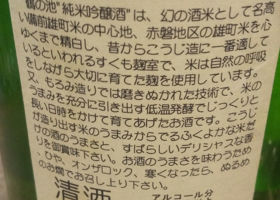 鶴の池"純米吟醸酒"は、幻の酒米として名高
い備前雄町米の中心地、赤磐地区の雄町米を芯
ゆくまで精白し、昔からこうじ造に一番適して
いるといわれるすくも麹室で、米は自然の呼吸
をしながら大切に育てた麹を使用しています。
又、もろみ造りでは磨きぬかれた技術で、米の
うまみを充分に引き出す低温発酵でじっくりと
長い日時をかけて育てあげたお酒です。こうじ
が造り出す米のうまみからでるふくよかな米だ
けの酒のうまさと、すばらしいデリシャスな香
りを御賞味下さい。お酒のうまさを味わうため
、ひや、オンザロック、寒くなったら、ぬるめ
のお燗でお召し上り下さい。
清酒
アルコール分